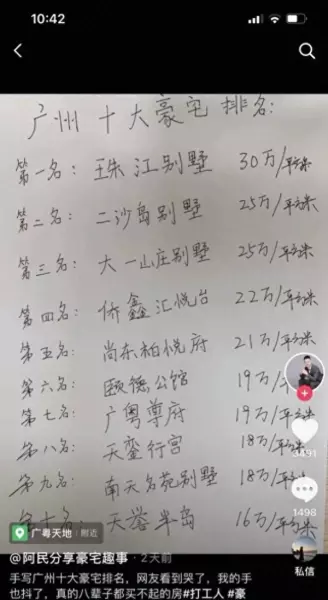 10:42
广州十大豪宅排名:
第一名: 珠江别墅 30万/平方米
第二名: 二沙岛别墅 25万/平方米
第三名: 大一山庄别墅 25万/平方米
第四名: 侨鑫汇悦台 22万/平方米
第五名: 尚东柏悦府 21万/平方米
第六名: 颐德公馆 19万/平方米
第七名: 广粤尊府 19万/平方米
第八名: 天銮行宫 18万/平方米
第九名: 南天名苑别墅 18万/平方米
第十名: 天誉半岛 16万/平方米
3491
1498
私信
广粤天地 | 附近
@阿民分享豪宅趣事 · 2天前
手写广州十大豪宅排名，网友看到哭了，我的手
也抖了，真的八辈子都买不起的房#打工人 #豪